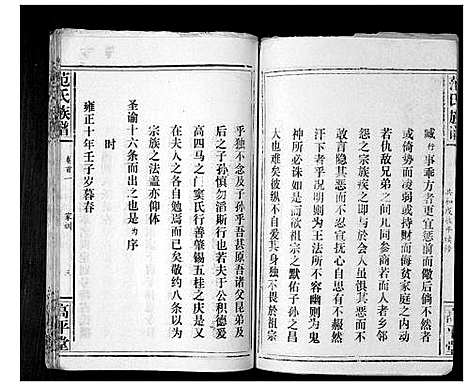 范氏族譜
共和戊辰年續修
高平堂
臧行事乖方者更宜惩前而儆后倘不然者
或倚势而凌弱或持財而侮贫家庭之内动
若仇敌兄弟之间尤同参商若而人者乡邻
怨之宗族疾之即局於教典一时不忍宣抚
且欲隐其恶而不忍宣抚
鼓于心乎况明则王法所不容幽则为鬼
神所必诛如是而祖宗之默佑子孙之昌
大也难矣彼纵不自爱其身独不畏於祖宗
乎独不念及于孙乎吾甚原吾诸父昆弟及
后之子孙慎勿滔斯行也果能積德爱
高四马之门窦氏行善肇锡五桂之庆是又
在夫人之各自勉焉而已矣敬约八条以为
宗族之法盖亦仰体
圣谕十六条而出之也是为序
时
雍正十年壬子岁暮春
范氏族譜
卷首一
家训
三
高平堂